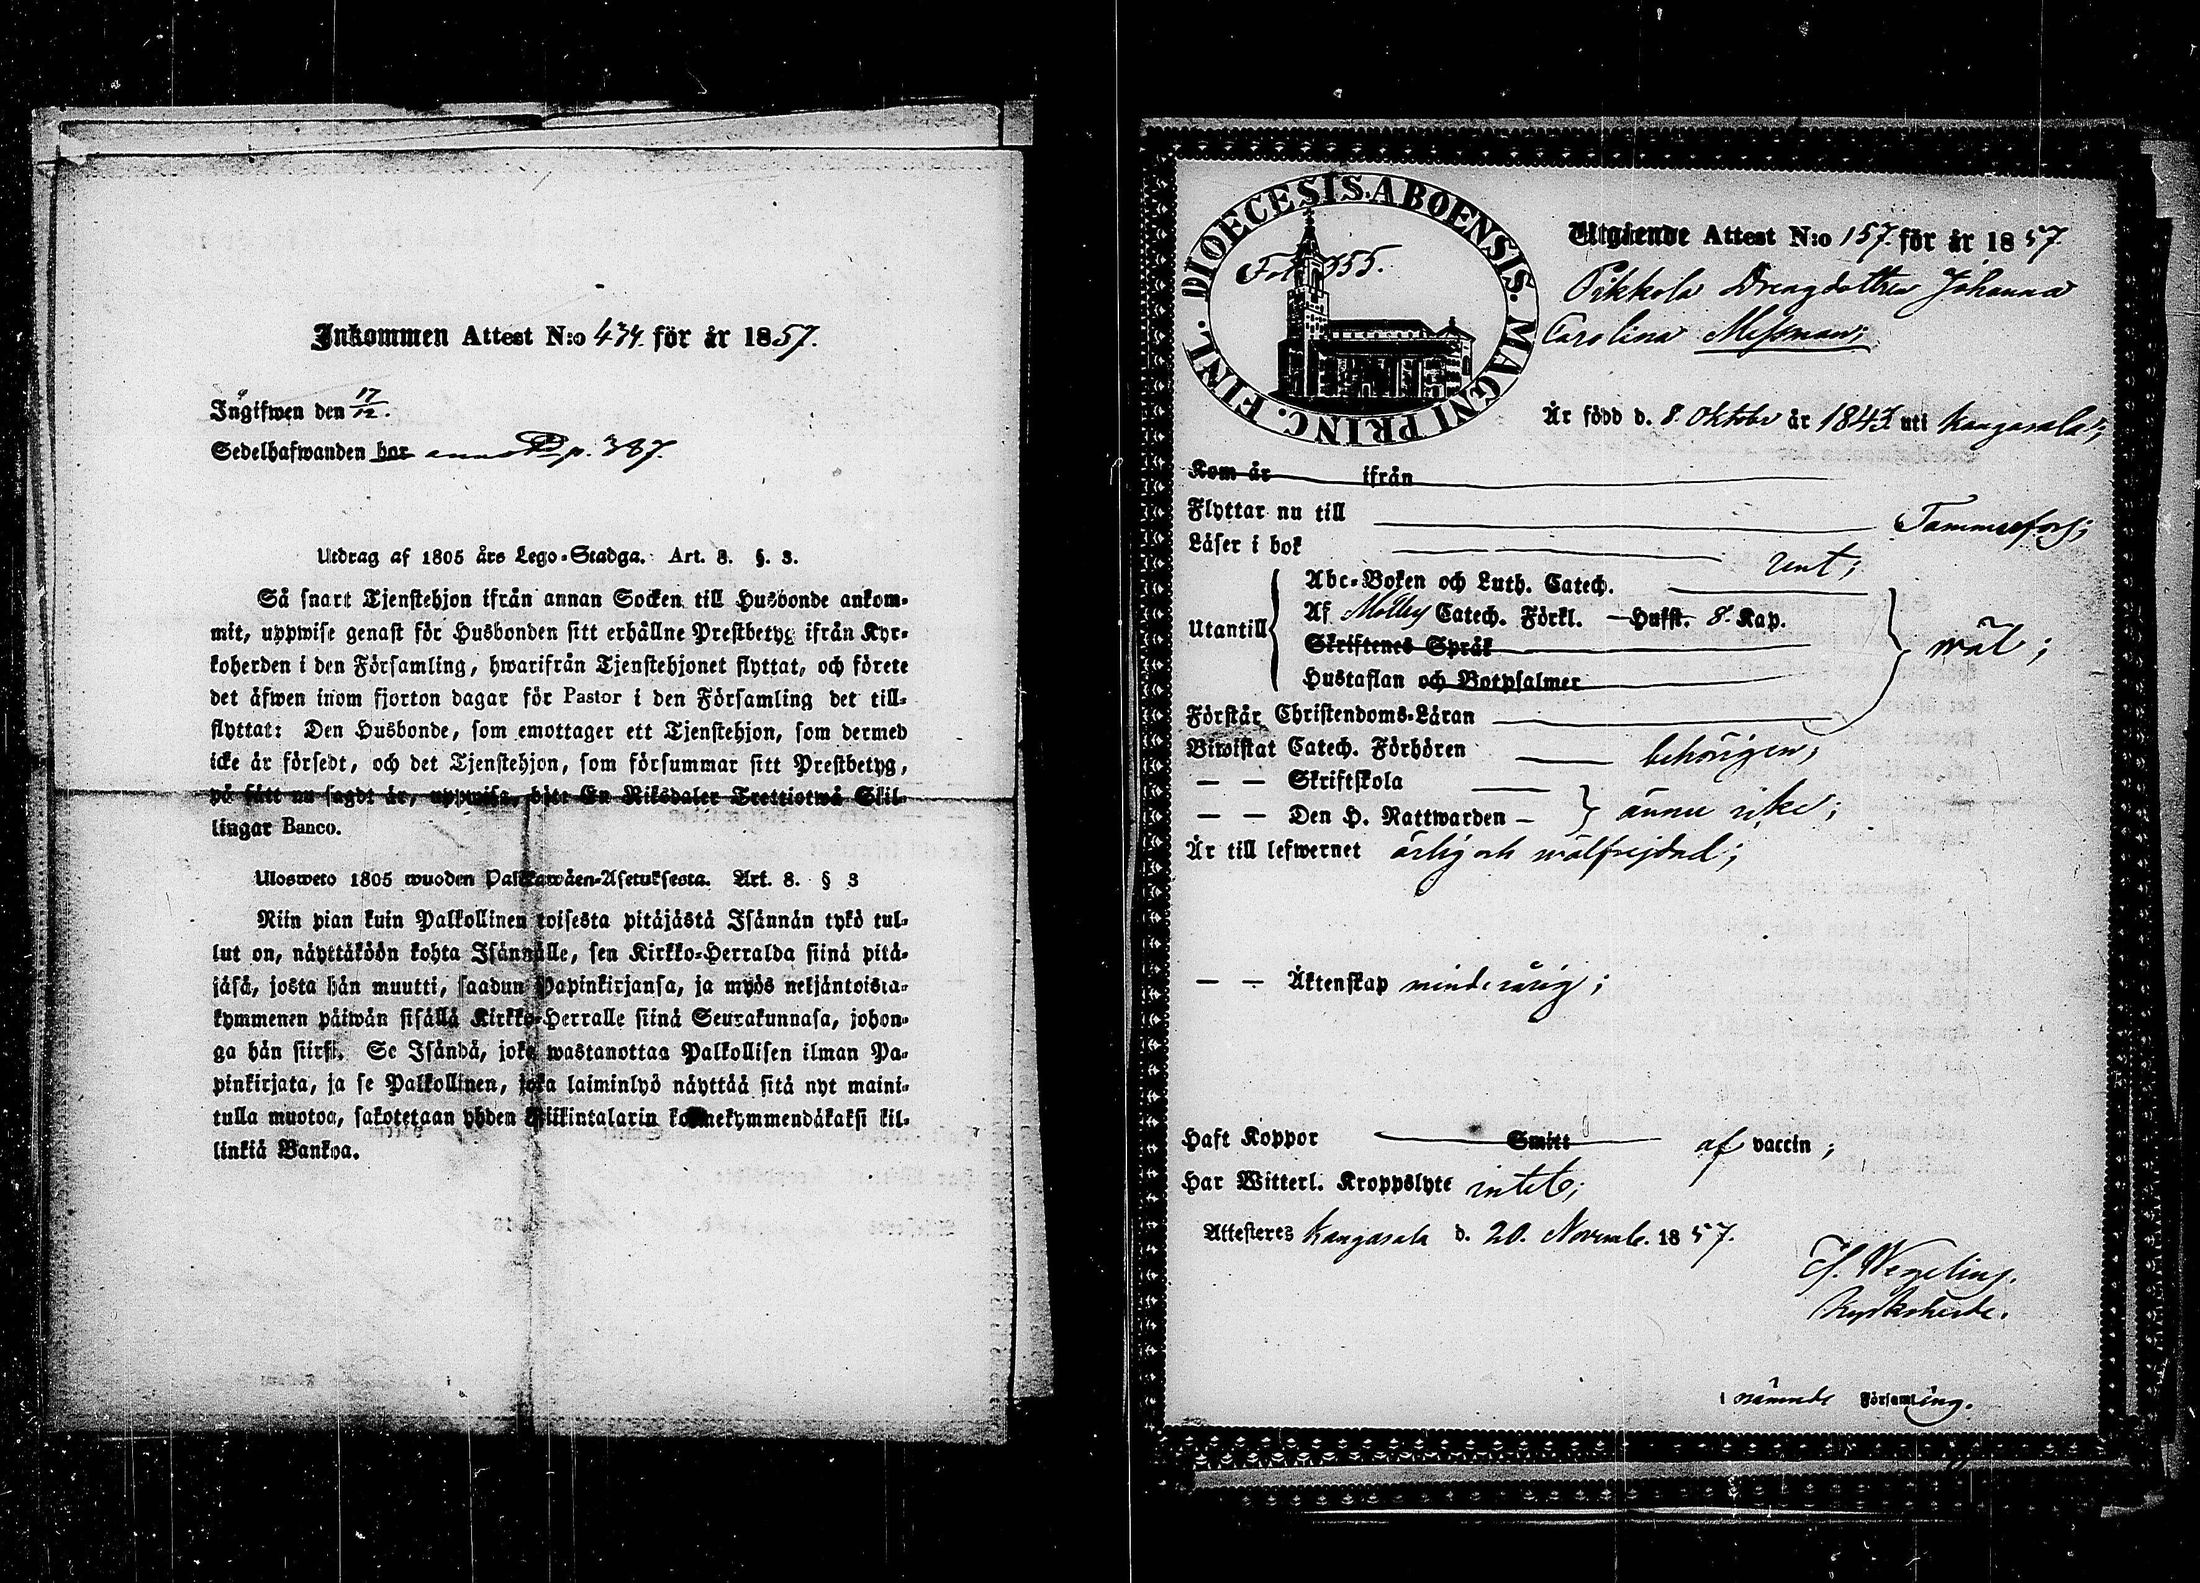 Inkommen Attest N:o 434. för år 1857.
Ingifwen den 17/12.
Sedelhafwanden har p. 387.
Utdrag af 1805 års Lego-Stadga. Art. 8. §. 3.
Så snart Tjenstehjon ifrån annan Socken till Husbonde ankom-
mit, uppwise genast för Husbonden sitt erhållne Prestbetyg ifrån Kyr-
koherden i den Församling, hwarifrån Tjenstehjonet flyttat, och förete
det äfwen inom fjorton dagar för Pastor i den Församling det till-
flyttat: Den Husbonde, som emottager ett Tjenstehjon, som dermed
icke är försedt, och det Tjenstehjon, som försummar sitt Prestbetyg,
på sätt nu sagdt är, uppwisa, böte En Riksdaler Trettiotwå Skil-
lingar Banco.
Ulosweto 1805 wuoden Palkkawäen-Asetuksesta. Art. 8. § 3
Niin pian kuin Palkollinen toisesta pitäjästä Isännän tykö tul-
lut on, näyttäköön kohta Isännälle, sen Kirkko-Herralda siinä pitä-
jäsä, josta hän muutti, saadun Papinkirjansa, ja myös neljäntoista-
kymmenen päiwän sisällä Kirkko-Herralle siinä Seurakunnasa, johon-
ga hän siirsi. Se Isändä, joka wastanottaa Palkollisen ilman Pa-
pinkirjata, ja se Palkollinen, joka laiminlyö näyttää sitä nyt maini-
tulla muotoa, sakotetaan yhden Riikintalarin kolmekymmendäkaksi kil-
linkiä Bankoa.
DIOECESIS. ABOENSIS. MAGNI PRINC. FINL.
Fol 355.
Utgående Attest N:o 157. för år 1857.
Pikkola Drengdottren Johanna
Carolina Messman;
Är född d. 8. Oktober år 1843. uti Kangasala;
Kom år ifrån
Flyttar nu till Tammerfors;
Läser i bok rent;
Utantill
Abc-Boken och Luth. Catech.
Af Möllers Catech. Förkl. Hufst. 8. Kap.
Skriftenes Språk
Hustaflan och Botpsalmer
wäl;
Förstår Christendoms-Läran
Biwistat Catech. Förhören behörigen;
— — Skriftskola
— — Den H. Nattwarden — ännu icke;
Är till lefwernet ärlig och wälfrejdad;
— — Äktenskap minderårig;
Haft Koppor Smitt af vaccin;
Har Witterl. Kroppslyte intet;
Attesteras Kangasala d. 20. Novemb. 1857.
Wegelius.
Kyrkoherde.
i nämnde Församling.